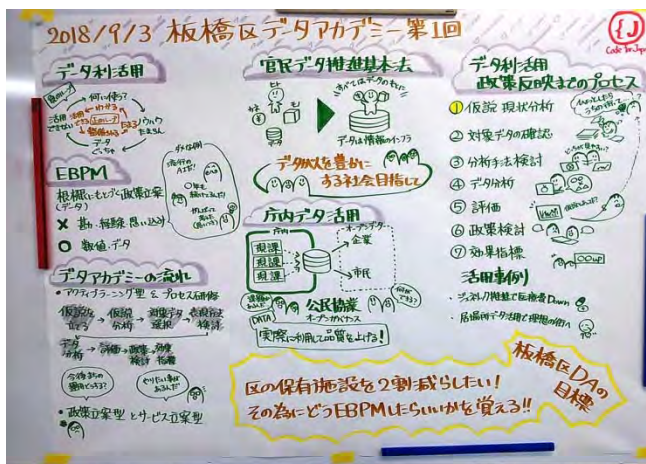 2018/9/3 板橋区データアカデミー第1回
Code for Japan
データ利活用
何に使う?
活用できない
活用できる
データぐっちゃ
ノウハウたまらん
EBPM
根拠にもとづく政策立案
(データ)
× 勘・経験・思い込み
○ 数値・データ
ダメな例
データアカデミーの流れ
・アクティブラーニング型 & プロセス研修
仮説を立てる→仮説分析→対象データ選択→表現方法検討
データ分析→評価→政策検討→効果指標
やりたい事があるんだ
・政策立案型とサービス立案型
官民データ推進基本法
すべてはデータのもとに
ヒト
カネ
モノ
データ
データは情報のインフラ
データが人を豊かに
する社会目指して
庁内データ活用
庁内
現課
現課
現課
オープンデータ
企業
市民
公民協業
オープンガバナンス
DATA
何ができる?
実際に利用して品質を上げる!
データ利活用
政策反映までのプロセス
① 仮説 現状分析
② 対象データの確認
③ 分析手法検討
④ データ分析
⑤ 評価
⑥ 政策検討
⑦ 効果指標
活用事例
・ジェネリック推進で医療費Down
・居場所データ活用で理想の街へ
板橋区DAの
目標
区の保有施設を2割減らしたい!
その為にどうEBPMしたらいいかを覚える!!